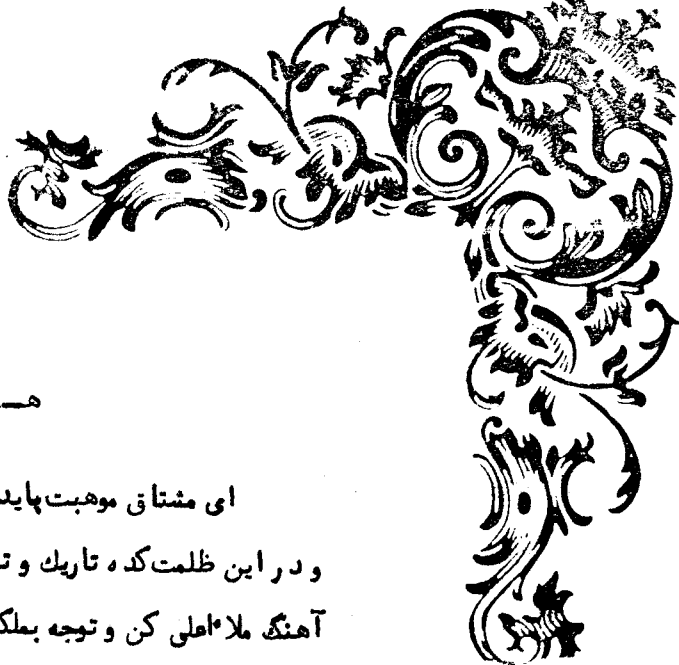 هـ
ای مشتاق موهبت پاید
و در این ظلمت‌کده تاریك و ت
آهنگ ملاٴاعلی کن و توجه بملک